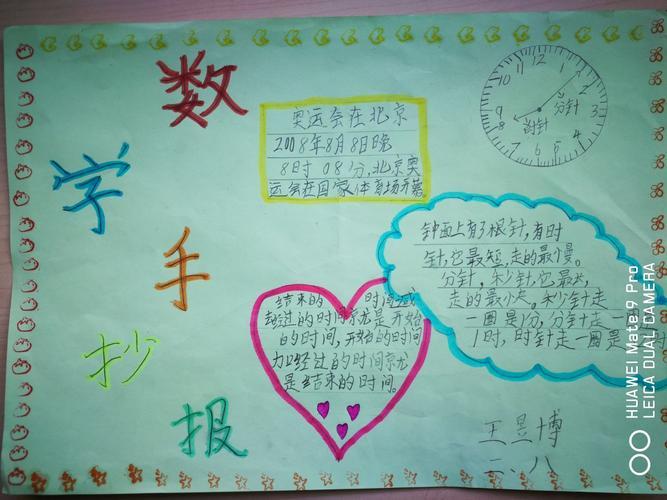 数
学
手
抄
报
奥运会在北京
2008年8月8日晚
8时08分,北京奥
运会在国家体育场开幕。
12
1
2
3
4
5
6
7
8
9
10
11
分针
时针
钟面上有3根针,有时
针,它最短,走的最慢。
分针,秒针,它最长,
走的最快。秒针走
一圈是1分,分针走一圈
1时,时针走一圈是 时
结束的 时间减
去经过的时间就是开始
的时间,开始的时间
加经过的时间就
是结束的时间。
王昱博
二、八
HUAWEI Mate 9 Pro
LEICA DUAL CAMERA